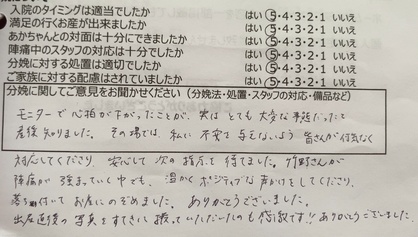 入院のタイミングは適当でしたか はい 5・4・3・2・1 いいえ
満足の行くお産が出来ましたか はい 5・4・3・2・1 いいえ
あかちゃんとの対面は十分にできましたか はい 5・4・3・2・1 いいえ
陣痛中のスタッフの対応は十分でしたか はい 5・4・3・2・1 いいえ
分娩に対する処置は適切でしたか はい 5・4・3・2・1 いいえ
ご家族に対する配慮はされていましたか はい 5・4・3・2・1 いいえ
分娩に関してご意見をお聞かせください(分娩法・処置・スタッフの対応・備品など)
モニターで心拍が下がったことが、実はとても大変な事態だったと
産後知りました。その場では、私に不安を与えないよう皆さんが何気なく
対応してくださり、安心して次の指示を待てました。竹野さんが
陣痛が強まっていく中でも、温かくポジティブな声かけをしてくださり、
落ち着いてお産にのぞめました。ありがとうございました。
出産直後の写真をすてきに撮っていただいたのも感激です!!ありがとうございました。